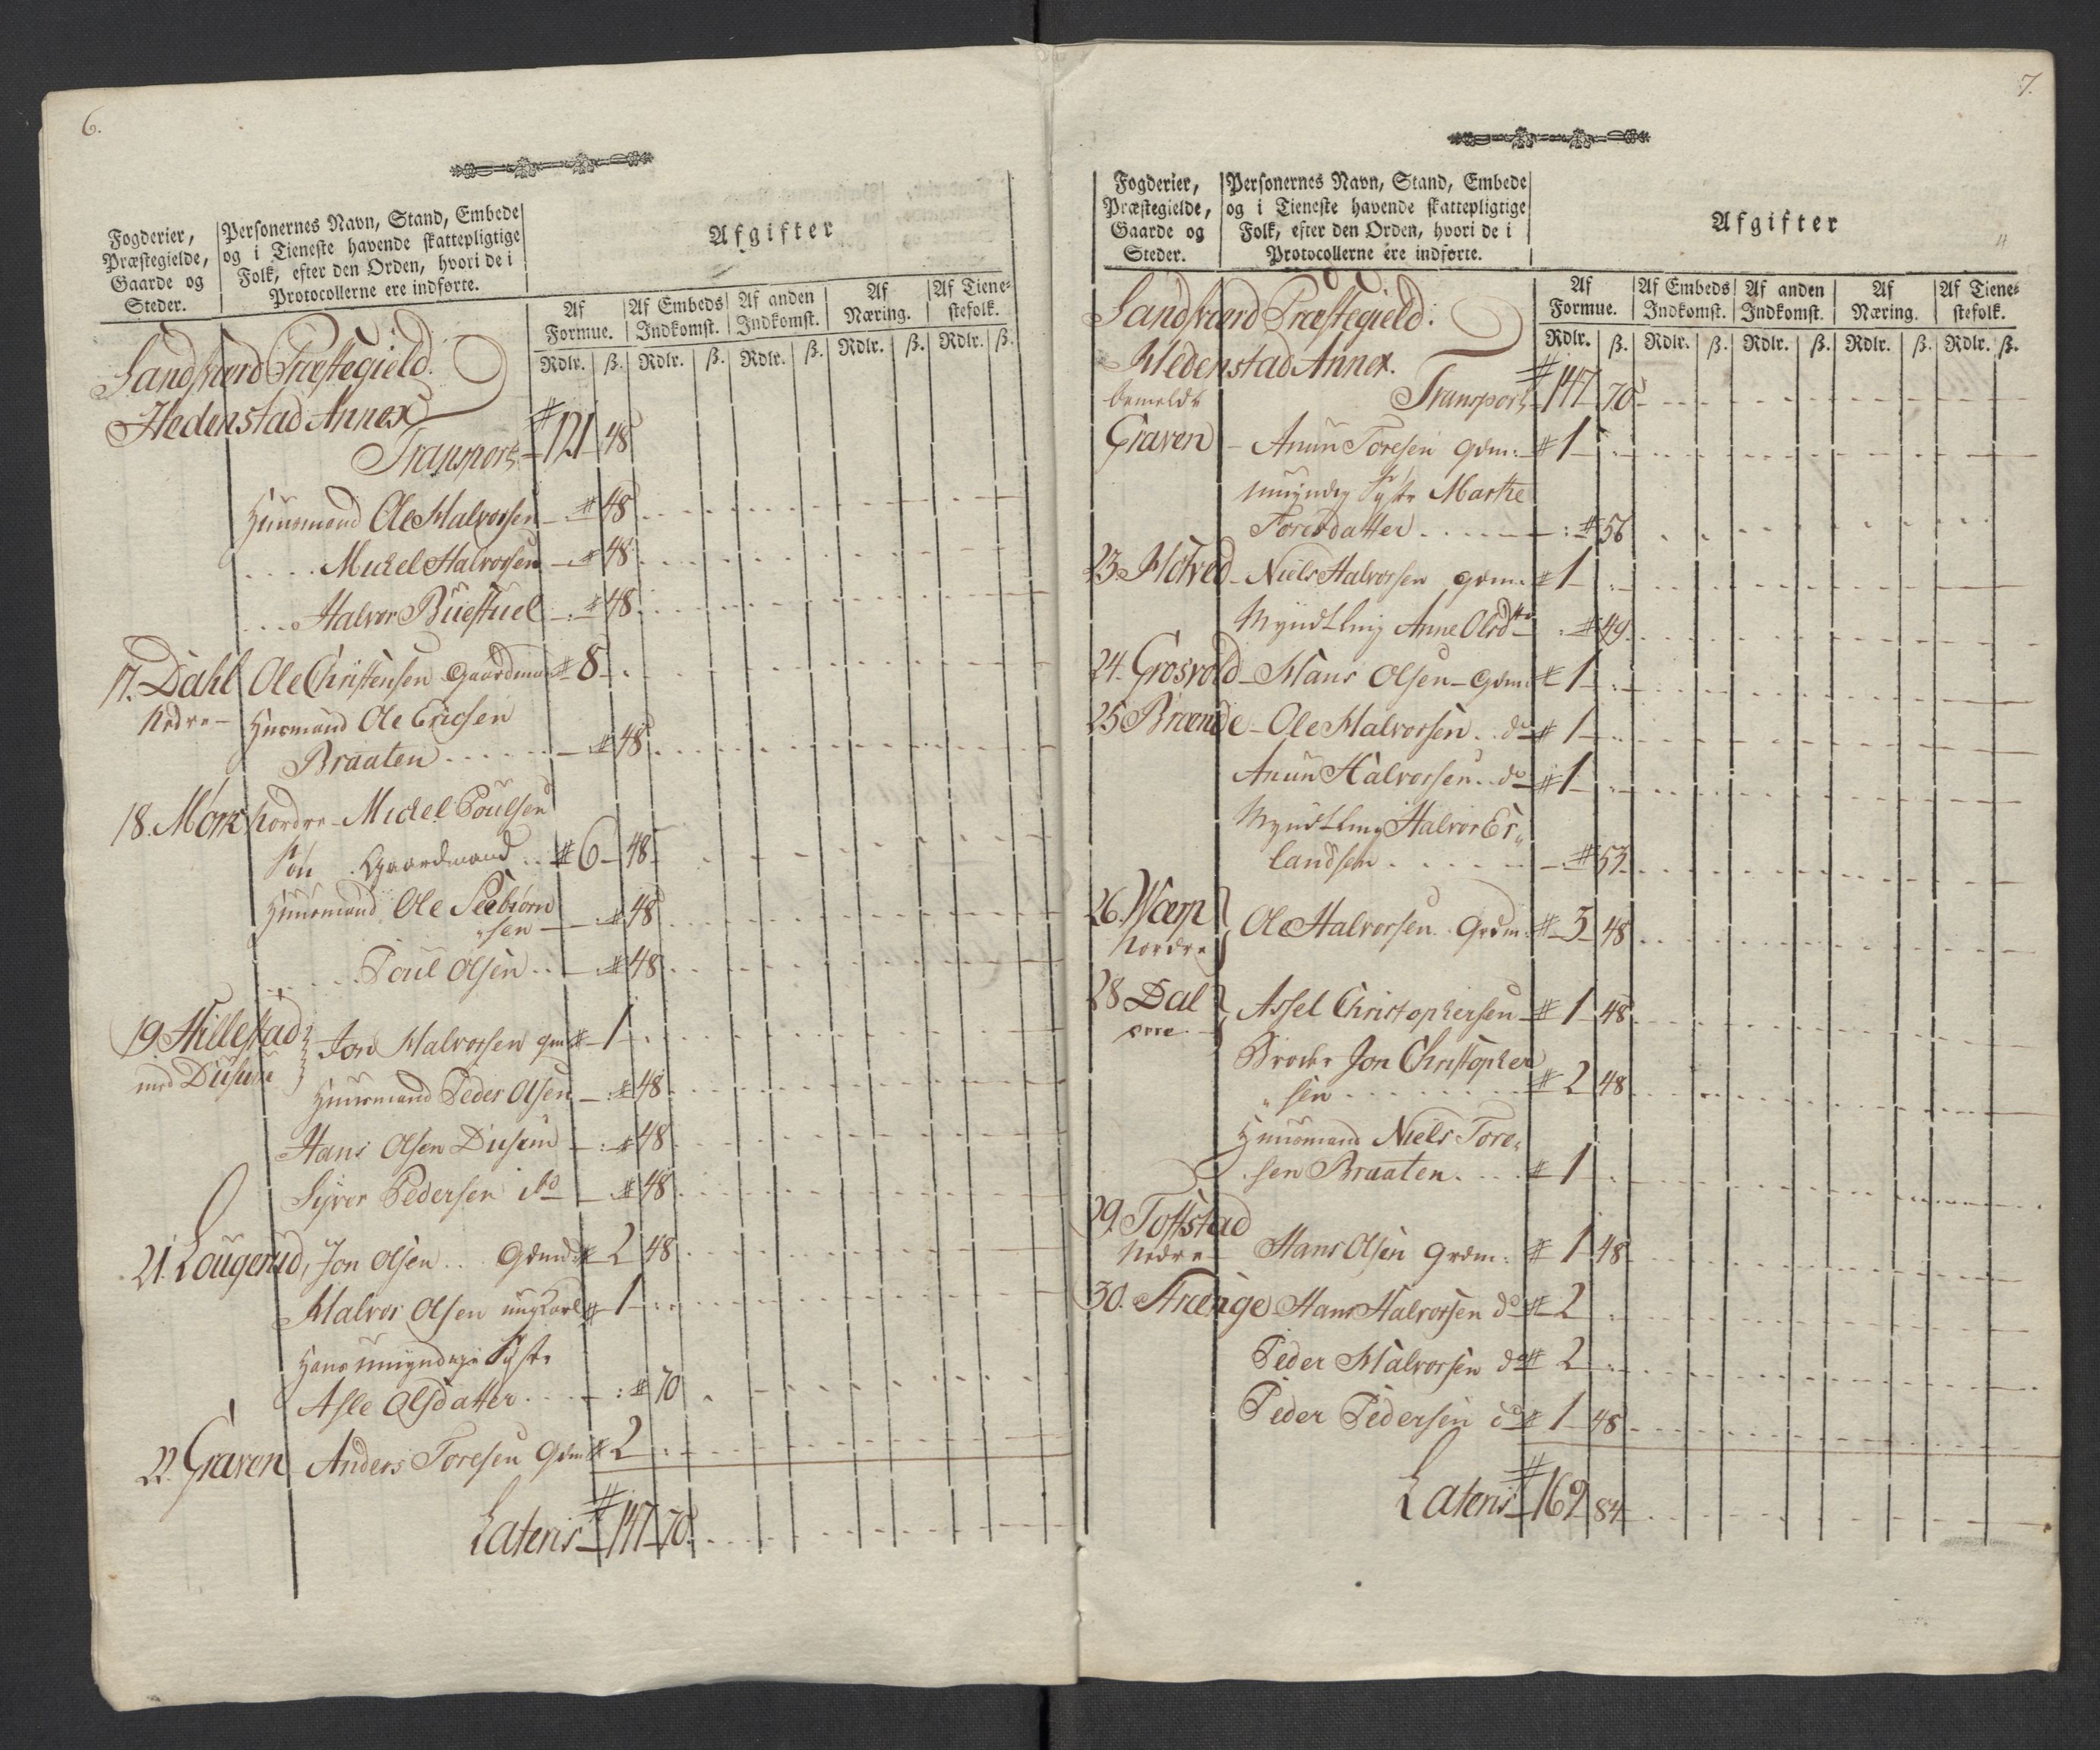 6.
Fogderier,
Præstegielde,
Gaarde og
Steder.
Personernes Navn, Stand, Embede
og i Tieneste havende skattepligtige
Folk, efter den Orden, hvori de i
Protocollerne ere indførte.
Afgifter
Af Formue. Af Embeds Indkomst. Af anden Indkomst. Af Næring. Af Tienestefolk.
Rdlr. ß. Rdlr. ß. Rdlr. ß. Rdlr. ß. Rdlr. ß.
Sandsværd Præstegield.
Hedenstad Annex
Transport 121 48
Huusmand Ole Halvorsen 48
Mickel Halvorsen 48
Halvor Buestuel 48
17. Dahl Ole Christensen Gaardmand 8
Nedre Huusmand Ole Ericsen
Braaten 48
18. Mørk Nordre Mickel Poulsen
Søn Gaardmand 6 48
Huusmand Ole Seebiørn
sen 48
Poul Olsen 48
19 Hillestad Jon Halvorsen gm 1
med Diisum Huusmand Peder Olsen 48
Hans Olsen Diisum 48
Syver Pedersen ibd 48
21. Lougerud, Jon Olsen Gdmd 2 48
Halvor Olsen ungkarl 1
Hans umyndige Syster
Asle Olsdatter 70
22. Graven Anders Toresen Gdm 2
Lateris 147 70
7.
Fogderier,
Præstegielde,
Gaarde og
Steder.
Personernes Navn, Stand, Embede
og i Tieneste havende skattepligtige
Folk, efter den Orden, hvori de i
Protocollerne ere indførte.
Afgifter
Af Formue. Af Embeds Indkomst. Af anden Indkomst. Af Næring. Af Tienestefolk.
Rdlr. ß. Rdlr. ß. Rdlr. ß. Rdlr. ß. Rdlr. ß.
Sandsværd Præstegield.
Hedenstad Annex.
bemeldte Transport 147 70
Graven Anun Toresen Gdm: 1
umyndig Syster Marthe
Toresdatter 56
23. Hotved Niels Halvorsen gdm: 1
Myndtling Anne Olsdtr 49
24. Grosvold Hans Olsen Gdm: 1
25 Brænde Ole Halvorsen do 1
Anun Halvorsen do 1
Myndtling Halvor Er„
landsen 53
26. Wærp Ole Halvorsen Grdm: 3 48
Nordre
28 Dal Assel Christophersen 1 48
øvre
Broder Jon Christopher
„sen 2 48
Huusmand Niels Tore„
sen Braaten 1
29. Toftstad
Nedre Hans Olsen Grdm: 1 48
30. Strænge Hans Halvorsen do 2
Peder Halvorsen do 2
Peder Pedersen do 1 48
Lateris 169 84